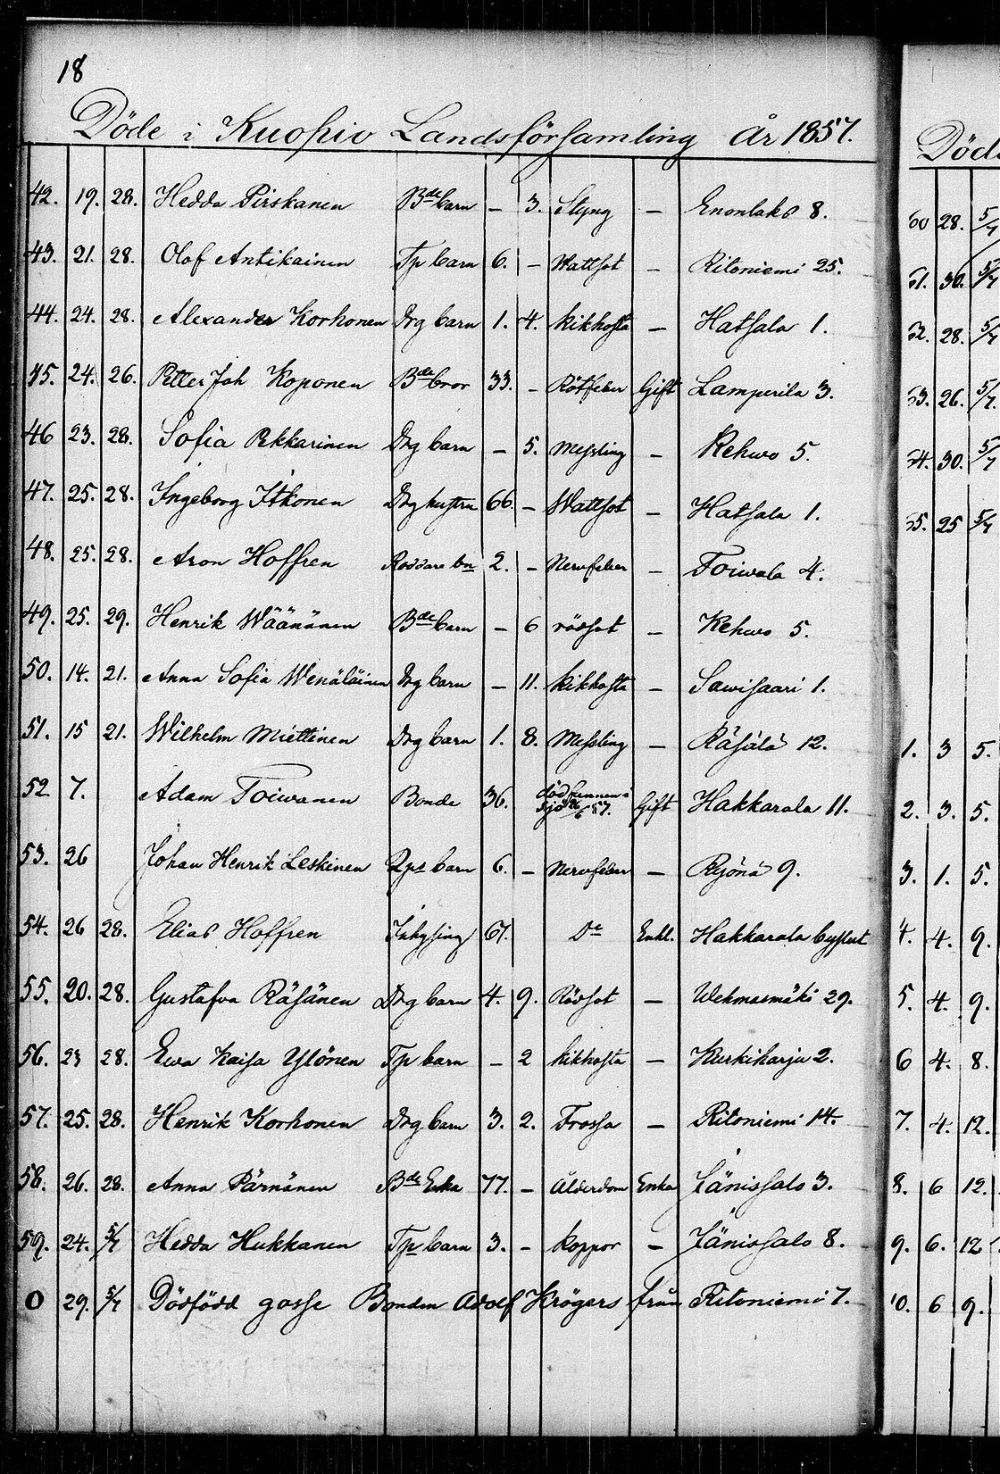 18
Döde i Kuopio Landsförsamling År 1857.
42. 19. 28. Hedda Pirskanen Bde barn – 3. Styng – Enonlaks 8.
43. 21. 28. Olof Antikainen Tp barn 6. – Wattsot – Ritoniemi 25.
44. 24. 28. Alexander Korhonen Drg barn 1. 4. kikhosta – Hatsala 1.
45. 24. 26. Petter Joh Koponen Bde bror 33. – Rötfeber Gift Lamperila 3.
46 23. 28. Sofia Pekkarinen Drg barn – 5. Messling – Kehwo 5.
47. 25. 28. Ingeborg Itkonen Drg hustru 66. – Wattsot – Hatsala 1.
48. 25. 28. Aron Hoffren bn 2. – Nervfeber – Toiwala 4.
49. 25. 29. Henrik Wäänänen Bde barn – 6 rödsot – Kehwo 5.
50. 14. 21. Anna Sofia Wenäläinen Drg barn – 11. kikhosta – Sawisaari 1.
51. 15 21. Wilhelm Miettinen Drg barn 1. 8. Messling – Räsälä 12.
52. 7. Adam Toiwanen Bonde 36. död funnen i sjö 26/6 57. Gift Hakkarala 11.
53. 26 Johan Henrik Leskinen barn 6. – Nervfeber – Ryönä 9.
54. 26 28. Elias Hoffren Inhysing 67. Do Enkl. Hakkarala
55. 20. 28. Gustafva Räsänen Drg barn 4. 9. Rödsot – Wehmasmäki 29.
56. 23 28. Ewa Kaisa Ylönen Tp barn – 2 kikhosta – Kurkiharju 2.
57. 25. 28. Henrik Korhonen Drg barn 3. 2. Frossa – Ritoniemi 14.
58. 26. 28. Anna Pärnänen Bde Enka 77. – Ålderdom Enka Jänissalo 3.
59. 24. 5/7 Hedda Hukkanen Tp barn 3. – koppor – Jänissalo 8.
0 29. 5/7 Dödfödd gosse Bonden Adolf Krögers från Ritoniemi 7.
Död
60 28. 5/7
61. 30. 5/7
62. 28. 5/7
63. 26. 5/7.
64. 30. 5/7
65. 25 5/7
1. 3 5.
2. 3. 5.
3. 1. 5.
4. 4. 9.
5. 4. 9.
6 4. 8.
7. 4. 12.
8. 6 12.
9. 6. 12
10. 6 9.